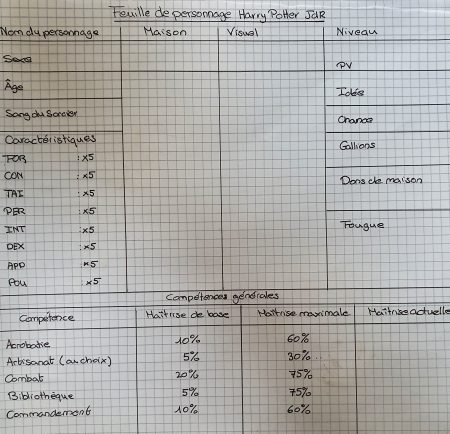 Feuille de personnage Harry Potter JdR
Nom du personnage Maison Visuel Niveau
Sexe
PV
Âge
Idée
Sang du Sorcier
Chance
Caractéristiques
Gallions
FOR :x5
CON :x5
Dons de maison
TAI :x5
PER :x5
Fougue
INT :x5
DEX :x5
APP :x5
POU :x5
Compétences générales
Compétence Maîtrise de base Maîtrise maximale Maîtrise actuelle
Acrobatie 10% 60%
Artisanat (au choix) 5% 30%
Combat 20% 75%
Bibliothèque 5% 75%
Commandement 10% 60%